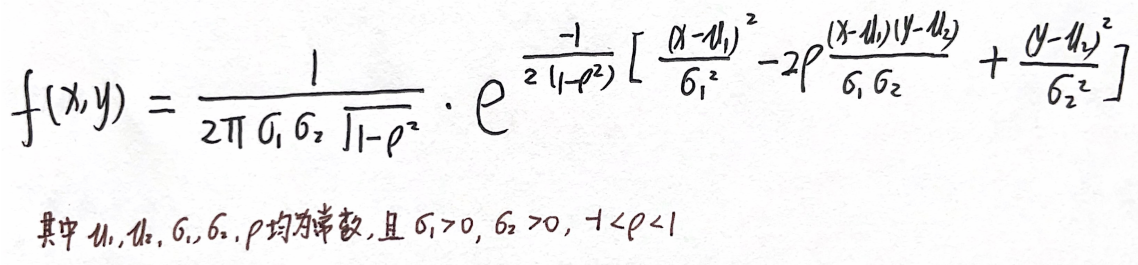 f(x,y) = \frac{1}{2\pi σ₁ σ₂ \sqrt{1-ρ²}} · e^{\frac{-1}{2(1-ρ²)} [ \frac{(x-μ₁)²}{σ₁²} - 2ρ \frac{(x-μ₁)(y-μ₂)}{σ₁σ₂} + \frac{(y-μ₂)²}{σ₂²} ]}
其中 μ₁, μ₂, σ₁, σ₂, ρ均为常数, 且 σ₁>0, σ₂>0, -1<ρ<1